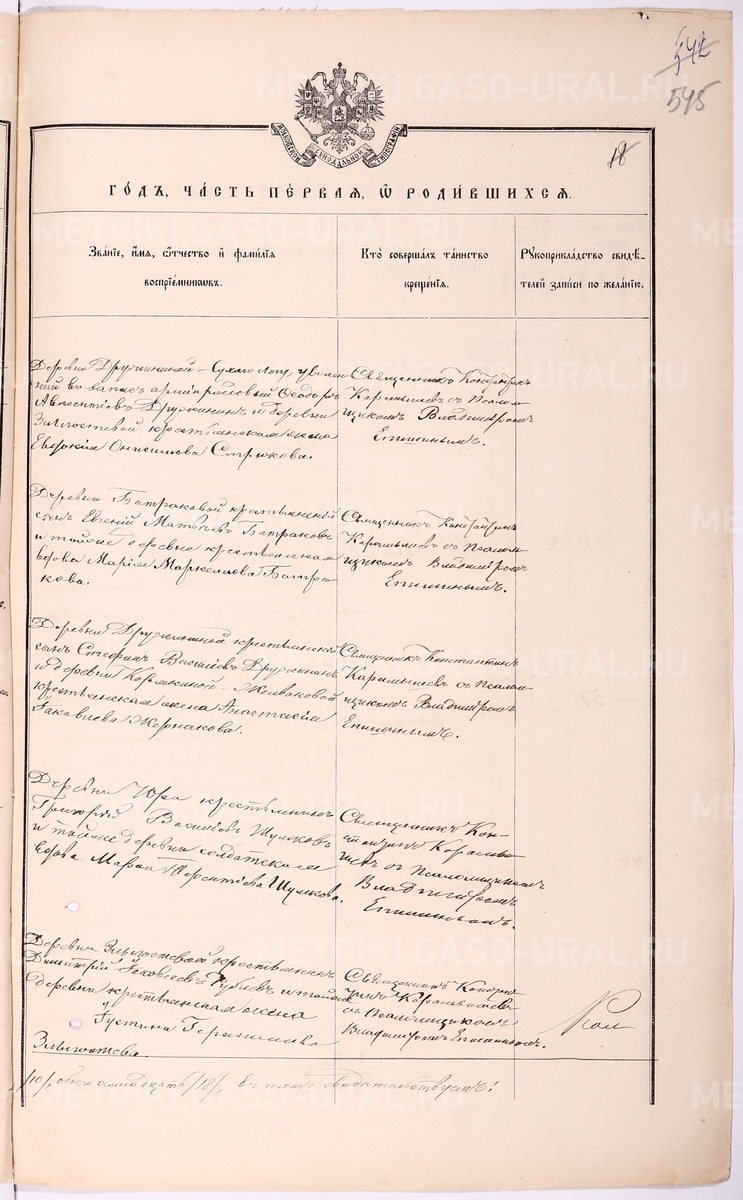 542
545
18
МОСКОВСКОЙ СѴНОДАЛЬНОЙ ТИПОГРАФІИ
ГО́ДЪ, ЧА́СТЬ ПЕ́РВАЯ, Ѡ҆ РОДИ́ВШИХСЯ.
Зва́ніе, и҆́мя, ѻ҆́тчество и҆ фами́лія
воспріе́мникѡвъ.
Кто̀ соверша́лъ та́инство
креще́нія.
Рꙋкоприкла́дство свидѣ́-
телей за́писи по жела́нію.
Деревни Дружининой-Сухаго Логу, уволен
ный въ запасъ арміи рядовый Ѳеодоръ
Авксентіевъ Дружининъ и деревни
крестьянская жена
Евдокія Онисимова Стрюкова.
Священникъ Константинъ
Карамышевъ съ Псалом-
щикомъ Владиміромъ
Епишинымъ.
Деревни Батраковой крестьянскій
сынъ Евгеній Матвѣевъ Батраковъ
и тойже деревни крестьянская
вдова Марія Маркеллова Батра
кова.
Священникъ Константинъ
Карамышевъ съ Псалом-
щикомъ Владиміромъ
Епишинымъ.
Деревни Дружининой крестьянскій
сынъ Стефанъ Василіевъ Дружининъ
и деревни Корякиной-
крестьянская жена Анастасія
Іаковлева Жернакова.
Священникъ Константинъ
Карамышевъ съ Псалом-
щикомъ Владиміромъ
Епишинымъ.
Деревни Юра крестьянинъ
Григорій Василіевъ Шулековъ
и тойже деревни солдатская
вдова Марѳа Терентіева Шулекова.
Священникъ Кон-
стантинъ Карамы-
шевъ съ Псаломщикомъ
Владиміромъ
Епишинымъ.
Деревни крестьянинъ
Димитрій Іаковлевъ Рублевъ и тойже
деревни крестьянская жена
Іустина Герасимова
Священникъ Констан
тинъ Карамышевъ
съ Псаломщикомъ
Владиміромъ Епишинымъ.
/10/, обоего осмнадцать /18/, въ томъ свидѣтельствуемъ:
METRIKI.GASO-URAL.RU